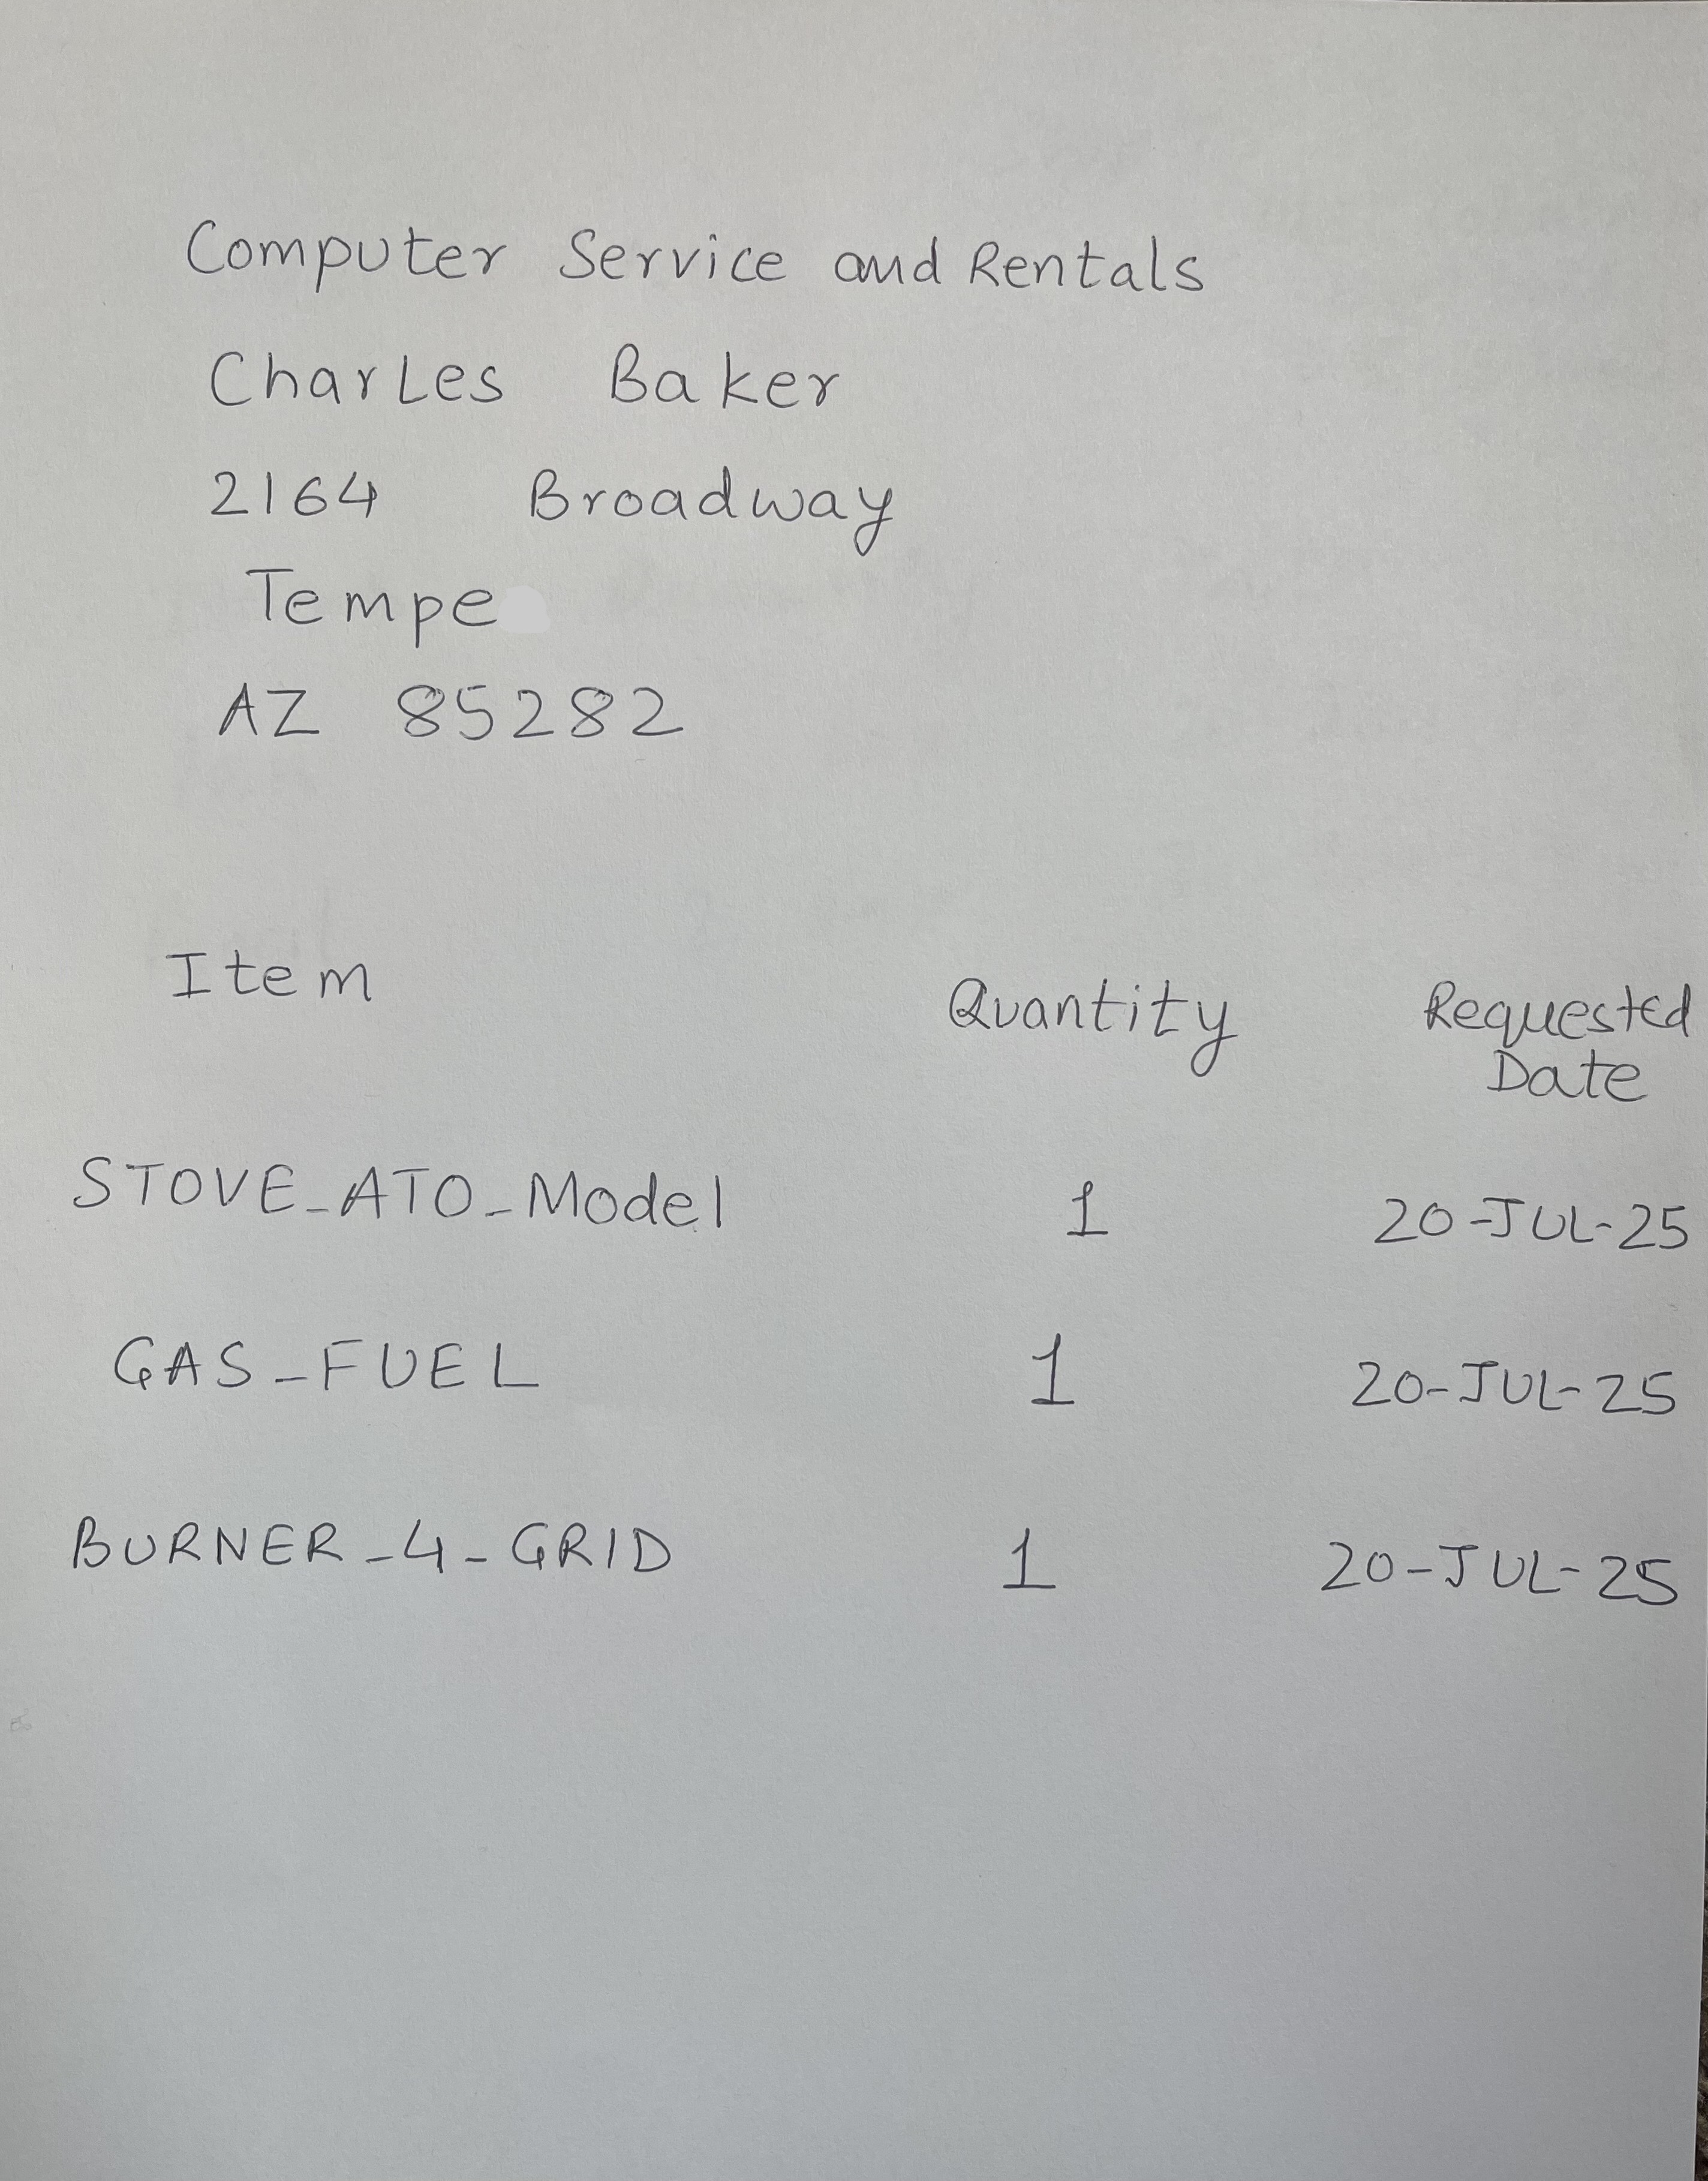 Computer Service and Rentals
Charles Baker
2164 Broadway
Tempe
AZ 85282
Item Quantity Requested
Date
STOVE_ATO_Model 1 20-JUL-25
GAS_FUEL 1 20-JUL-25
BURNER_4_GRID 1 20-JUL-25